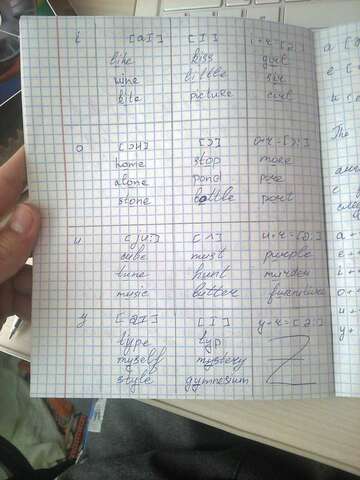 i [aI] [I] i+r [ə:]
like kiss girl
nine little sir
kite picture
o [ɔ] o+r - [ɔ:]
home stop more
alone pond
stone bottle port
u [ju:] [ʌ] u+r - [ə:]
cube must purple
tune hunt murder
music butter furniture
y [aI] [I] y+r = [ə:]
type
myself mystery
style gymnesium
a
e
The
a+
e+
i+
o+
u+
y+